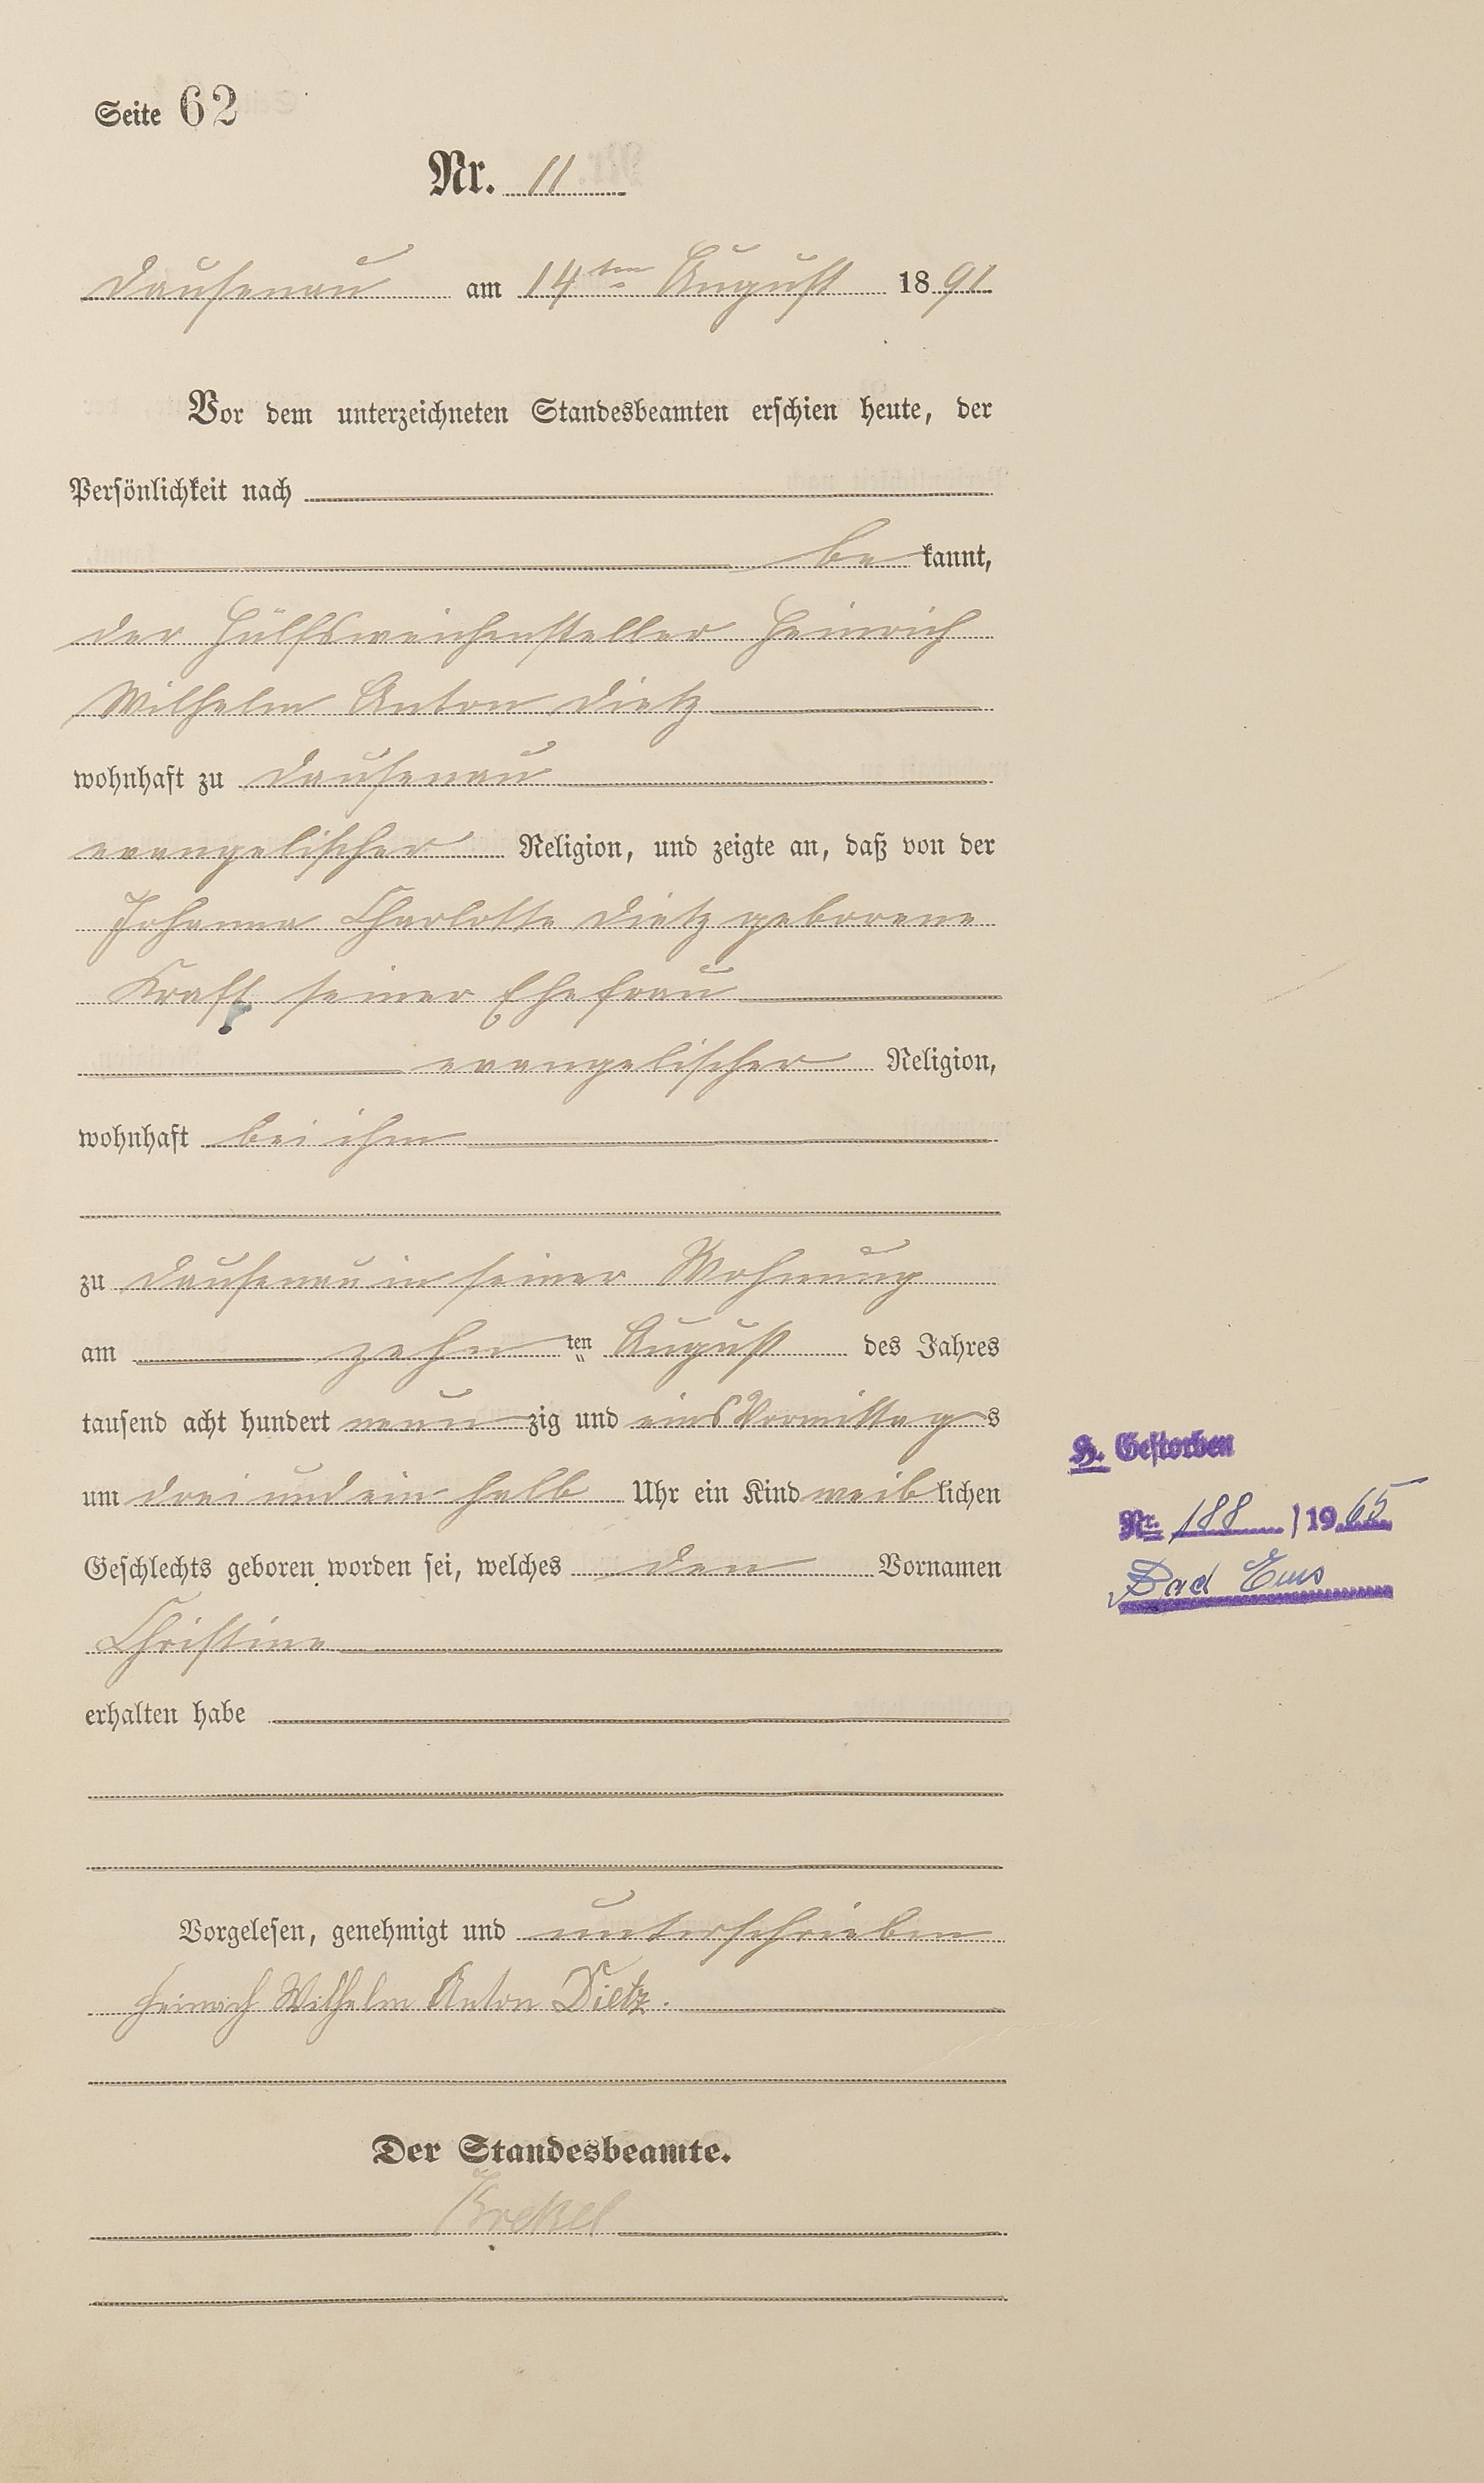 Seite 62
Nr. 11
Dausenau am 14ten August 1891
Vor dem unterzeichneten Standesbeamten erschien heute, der
Persönlichkeit nach
be kannt,
der Hülfsweichensteller Heinrich
Wilhelm Anton Dietz
wohnhaft zu Dausenau
evangelischer Religion, und zeigte an, daß von der
Johanna Charlotte Dietz geborene
Kraft seiner Ehefrau
evangelischer Religion,
wohnhaft bei ihm
zu Dausenau in seiner Wohnung
am zehn ten August des Jahres
tausend acht hundert neun zig und eins Vormittag s
um drei und ein halb Uhr ein Kind weib lichen
Geschlechts geboren worden sei, welches den Vornamen
Christine
erhalten habe
H. Gestorben
Nr. 188 / 1965
Bad Ems
Vorgelesen, genehmigt und unterschrieben
Heinrich Wilhelm Anton Dietz.
Der Standesbeamte.